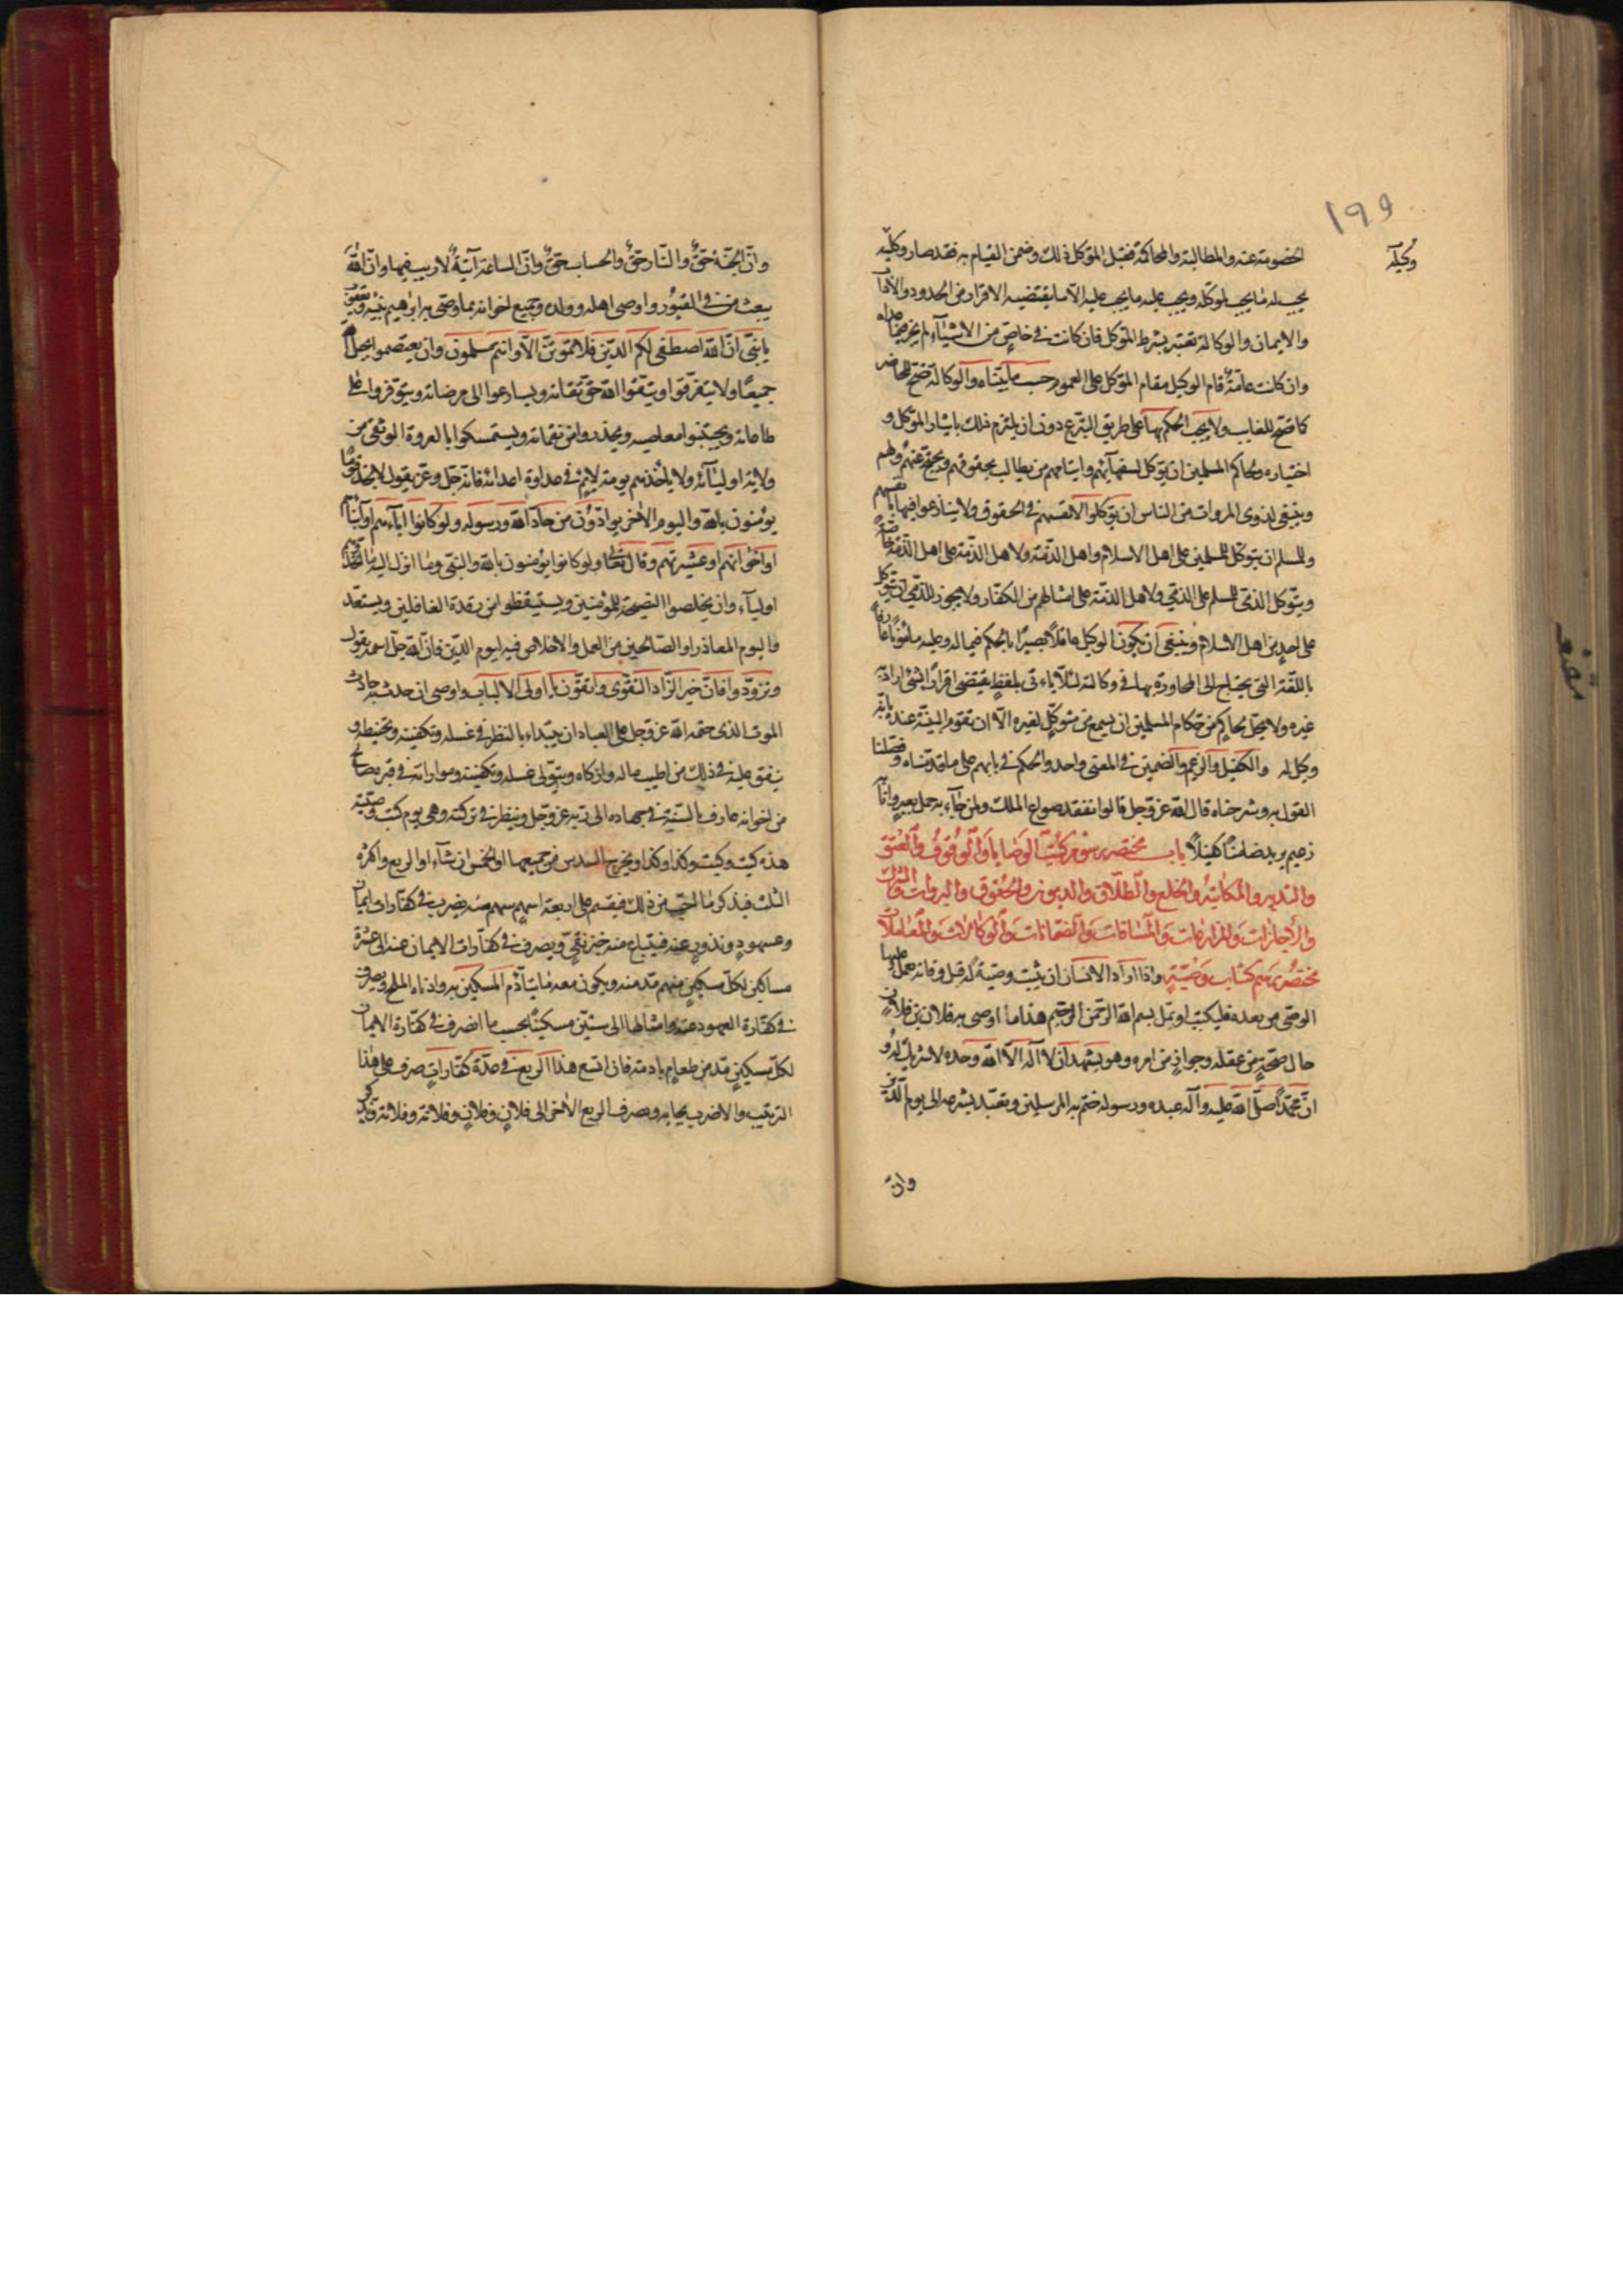 ١٩٩
وكيله
الخصومة عنه والمطالبة والمحاكمة فقبل المتوكل ذلك وضمن القيام به فقد صار وكيله
يجب له ما يجب لموكله ويجب عليه ما يجب عليه الا ما يقتضيه الاقرار من الحدود والآداب
والايمان والوكالة تعتبر بشرط الموكل فان كانت في خاص من الاشياء لم يجز فيما عداه
وان كانت عامة قام الوكيل مقام الموكل على العموم حسب ما بيناه والوكالة تصح للحاضر
كما تصح للغايب ولا يجب الحكم بها على طريق التبرع دون ان يلتزم ذلك بايثار الموكل و
اختياره ولحاكم المسلمين ان يوكل لسفهائهم وايتامهم من يطالب بحقوقهم ويحتج عنهم ولهم
وينبغي لذوي المروات من الناس ان يوكلوا لانفسهم في الحقوق ولا ينازعوا فيها بانفسهم
وللمسلم ان يتوكل للمسلمين على اهل الاسلام واهل الذمة ولاهل الذمة على اهل الذمة خاصة
ويتوكل الذمي للمسلم على الذمي ولاهل الذمة على امثالهم من الكفار ولا يجوز للذمي ان يتوكل
على احد من اهل الاسلام وينبغي ان يكون الوكيل عاقلا بصيرا بالحكم فيما له وعليه مامونا عارفا
باللغة التي يحتاج الى المحاورة بها في وكالته لئلا ياتي بلفظ يقتضي اقرارا بشئ اراد به
غيره ولا يحل لحاكم من حكام المسلمين ان يسمع من متوكل لغيره الا ان تقوم البينة عنده بانه
وكيل له والكفيل والزعيم والضمين في المعنى واحد والحكم في بابهم على ما قدمناه وفصلنا
القول به وشرحناه قال الله عز وجل قالوا نفقد صواع الملك ولمن جآء به حمل بعير وانا به
زعيم يريد ضامنا كفيلا باب مختصر من كتب الوصايا والوقوف والعتق
والتدبير والمكاتبة والخلع والطلاق والديون والحقوق والبروات والشركات
والاجارات والمزارعات والمساقات والضمانات والوكالات والمعاملات
مختصر رسم كتاب وصية واذا اراد الانسان ان يثبت وصية له قبل وفاته عمل عليها
الوصي من بعده فليكتب او تمل بسم الله الرحمن الرحيم هذا ما اوصى به فلان بن فلان
حال صحة من عقله وجواز من امره وهو يشهد ان لا اله الا الله وحده لا شريك له و
ان محمدا صلى الله عليه وآله عبده ورسوله ختم به المرسلين وتعبد بشرعه الى يوم الدين
وان
وان الجنة حق والنار حق والحساب حق وان الساعة آتية لا ريب فيها وان الله
يبعث من في القبور واوصى اهله وولده وجميع اخوانه بما وصى به ابراهيم بنيه ويعقوب
يا بني ان الله اصطفى لكم الدين فلا تموتن الا وانتم مسلمون وان يعتصموا بحبل الله
جميعا ولا يتفرقوا ويتقوا الله حق تقاته ويسارعوا الى مرضاته ويتوفروا على
طاعاته ويجتنبوا معاصيه ويحذروا من نقماته ويستمسكوا بالعروة الوثقى من
ولاية اوليآئه ولا ياخذهم لومة لايم في عداوة اعدائه فانه جل وعز يقول لا تجد قوما
يؤمنون بالله واليوم الآخر يوادون من حاد الله ورسوله ولو كانوا ابآءهم او ابنآءهم
او اخوانهم او عشيرتهم وقال تعالى ولو كانوا يؤمنون بالله والنبي وما انزل اليه ما اتخذوهم
اوليآء وان يخلصوا النصيحة للمؤمنين ويستيقظوا من رقدة الغافلين ويستعد
واليوم المعاد زاد الصالحين من العمل والاخلاص فيه ليوم الدين فان الله جل اسمه يقول
وتزودوا فان خير الزاد التقوى واتقون يا اولي الالباب واوصى ان حدث به حادث
الموت الذي حتمه الله عز وجل على العباد ان يبتداء بالنظر في غسله وتكفينه وتحنيطه و
ينفق عليه في ذلك من اطيب ماله وازكاه ويتولى غسله وتكفينه ومواراته في قبره صالح
من اخوانه عارف بالسنة في جهاده الى ربه عز وجل وينظر في تركته وهي يوم كتب وصيته
هذه كيت وكيت وكذا وكذا ويخرج السدس من جميعها او الخمس ان شآء او الربع واكثره
الثلث فيذكر ما احب من ذلك فيقسم على اربعة اسهم سهم منه يضرب في كفارات ايمان
وعهود ونذور عنه فيبتاع منه خبز نقي ويصرف في كفارات الايمان عنه الى عشرة
مساكين لكل مسكين منهم مد منه ويكون معه ما يتآدم المسكين به وادناه الملح ويصرف
في كفارة العهود عنه وامثالها الى ستين مسكينا بحسب ما انصرف في كفارة الايمان
لكل مسكين مد من طعام بادمه فان اتسع هذا الربع في عدة كفارات صرف على هذا
الترتيب والا ضرب بحسابه ويصرف الربع الآخر الى فلان وفلان وفلانة وفلانة